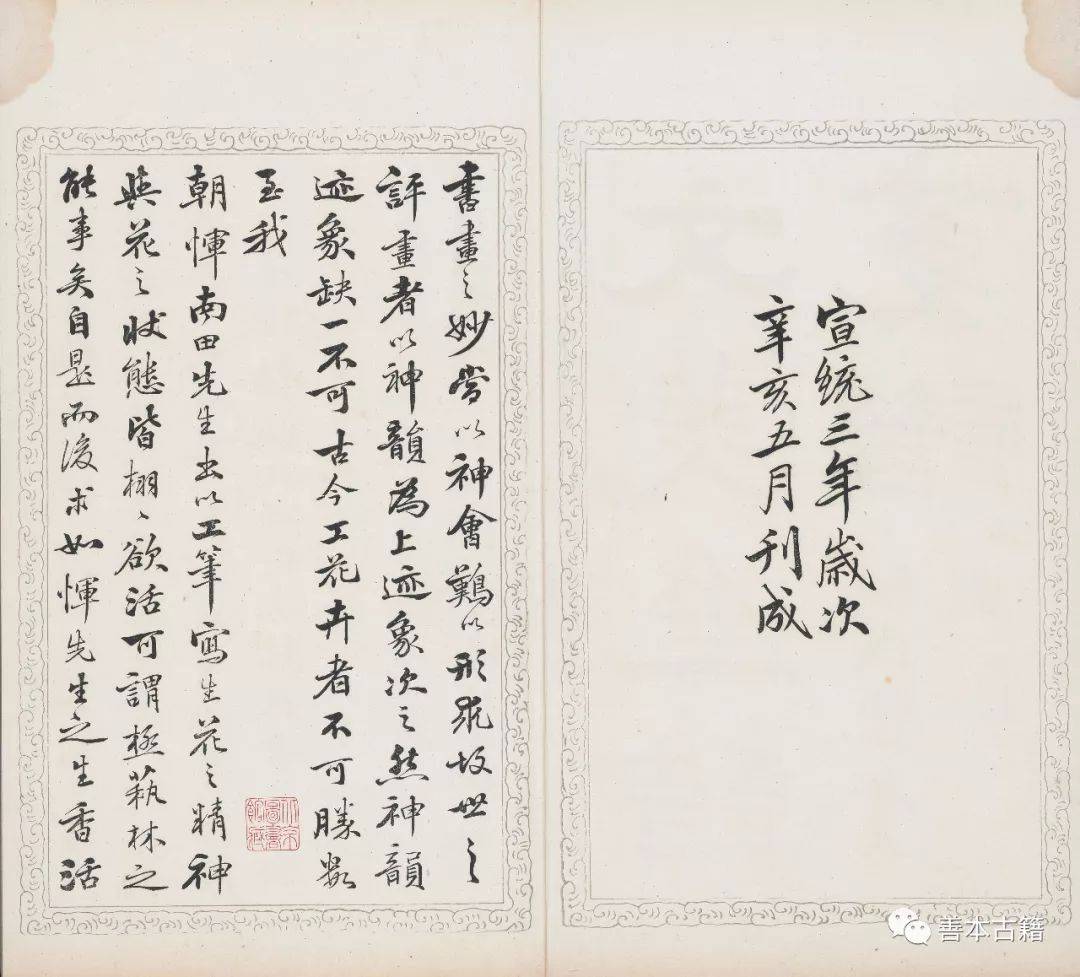 宣統三年歲次
辛亥五月刊成
書畫之妙當以神會難以形跡故世之
評畫者以神韻為上迹象次之然神韻
迹象缺一不可古今工花卉者不可勝數
至我
朝惲南田先生出以工筆寫生花之精神
與花之狀態皆栩〻欲活可謂極蓺林之
能事矣自是而後求如惲先生之生香活
善本古籍